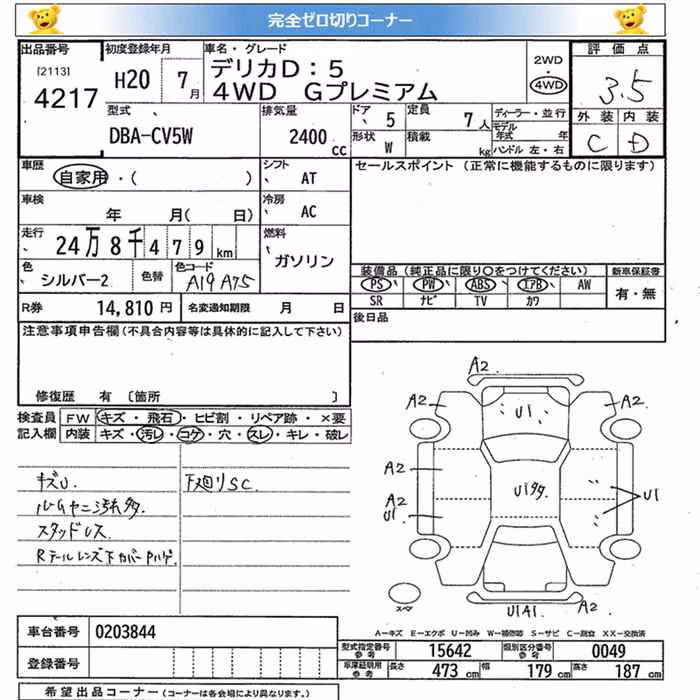 完全ゼロ切りコーナー
出品番号 初度登録年月 車名・グレード 評価点
[2113] 4217 H20 7月 デリカD:5 2WD 3.5
4WD Gプレミアム 4WD
型式 排気量 ドア 定員 ディーラー・並行 外装 内装
DBA-CV5W 2400cc 5 7人 モデル年式 年 C D
形状 W 積載 kg ハンドル 左・右
車歴 自家用・( ) シフト AT セールスポイント (正常に機能するものに限ります)
車検 年 月( 日) 冷房 AC
走行 24万8千479km 燃料 ガソリン
色 シルバー2 色替 色コード A19 A75
装備品 (純正品に限り○をつけてください) 新車保証書
PS PW ABS エアB AW 有・無
SR ナビ TV カワ
R券 14,810円 名変通知期限 月 日 後日品
注意事項申告欄(不具合内容等は具体的に記入して下さい)
修復歴 有 〔箇所 〕
検査員 FW キズ・飛石・ヒビ割・リペア跡・×要
記入欄 内装 キズ・汚レ・コゲ・穴・スレ・キレ・破レ
キズU. 下廻りSC.
ルームヤニ汚れ多.
スタッドレス
Rテールレンズ下カバーPハゲ
A2
A2 U1 A2
A2
U1多
A2
U1 U1
スペア U1A1 A2
A-キズ E-エクボ U-凹み W-補修跡 S-サビ C-腐食 XX-交換済
車台番号 0203844
型式指定番号 参考 15642 類別区分番号 参考 0049
登録番号
車庫証明用 参考 長さ 473 cm 幅 179 cm 高さ 187 cm
希望出品コーナー (コーナーは各会場により異なります。)